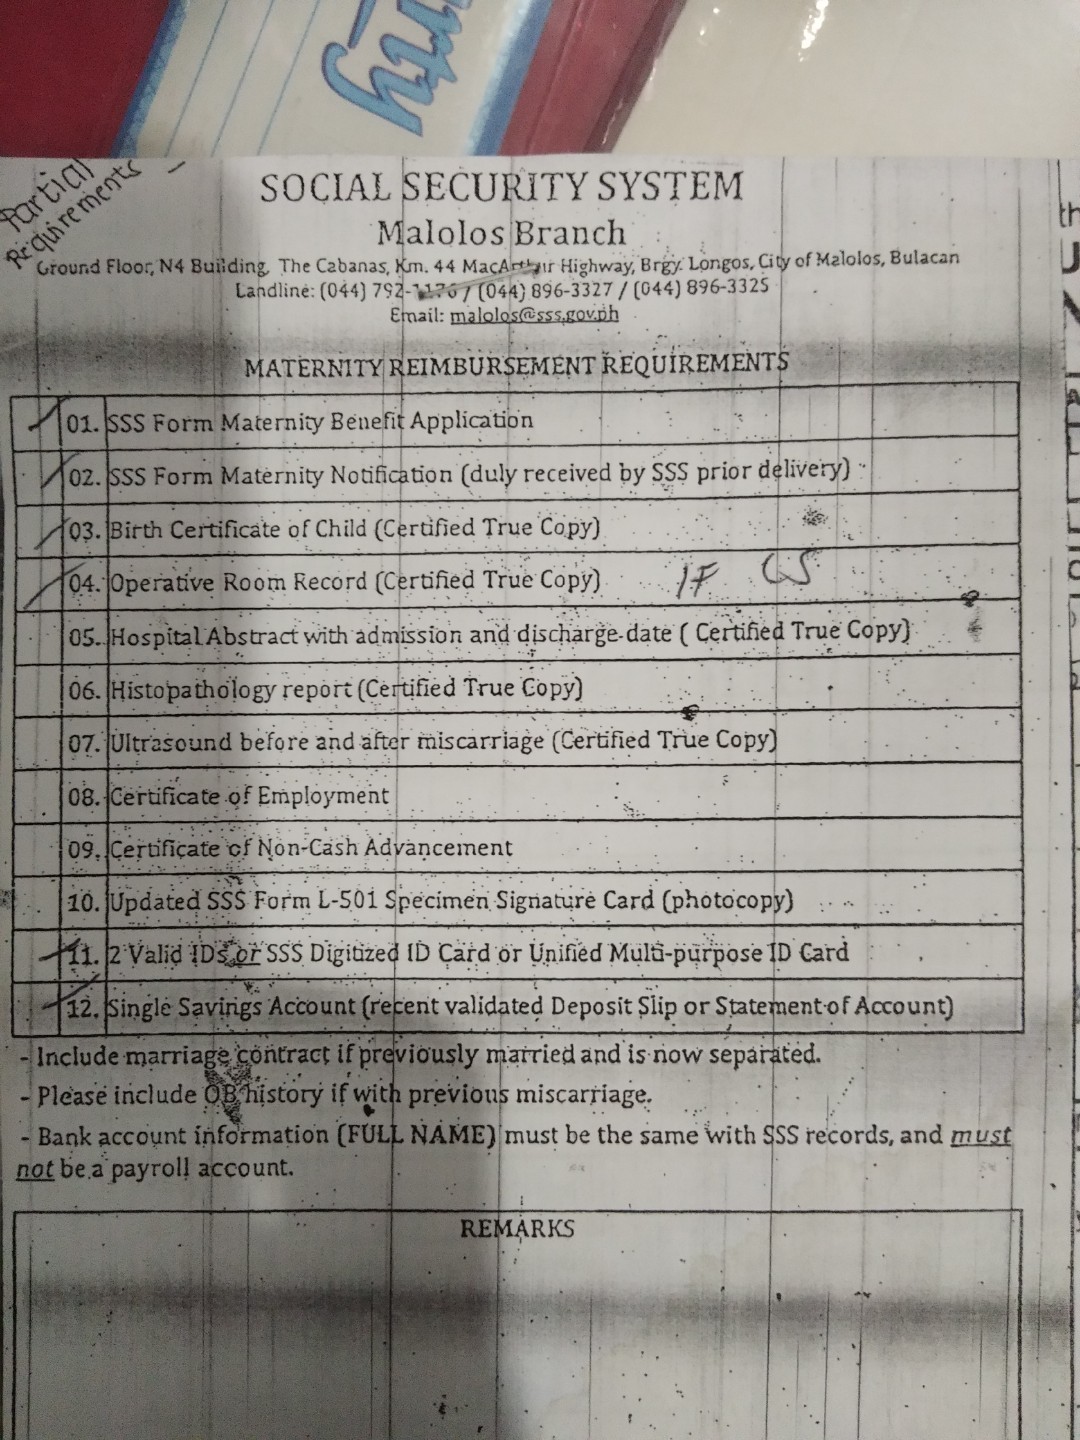 rty
Partial
Requirements
SOCIAL SECURITY SYSTEM
Malolos Branch
Ground Floor, N4 Building, The Cabanas, Km. 44 MacArthur Highway, Brgy. Longos, City of Malolos, Bulacan
Landline: (044) 792-1176 / (044) 896-3327 / (044) 896-3325
Email: malolos@sss.gov.ph
MATERNITY REIMBURSEMENT REQUIREMENTS
01. SSS Form Maternity Benefit Application
02. SSS Form Maternity Notification (duly received by SSS prior delivery)
03. Birth Certificate of Child (Certified True Copy)
04. Operative Room Record (Certified True Copy) IF CS
05. Hospital Abstract with admission and discharge date ( Certified True Copy)
06. Histopathology report (Certified True Copy)
07. Ultrasound before and after miscarriage (Certified True Copy)
08. Certificate of Employment
09. Certificate of Non-Cash Advancement
10. Updated SSS Form L-501 Specimen Signature Card (photocopy)
11. 2 Valid IDs or SSS Digitized ID Card or Unified Multi-purpose ID Card
12. Single Savings Account (recent validated Deposit Slip or Statement of Account)
- Include marriage contract if previously married and is now separated.
- Please include OB history if with previous miscarriage.
- Bank account information (FULL NAME) must be the same with SSS records, and must
not be a payroll account.
REMARKS